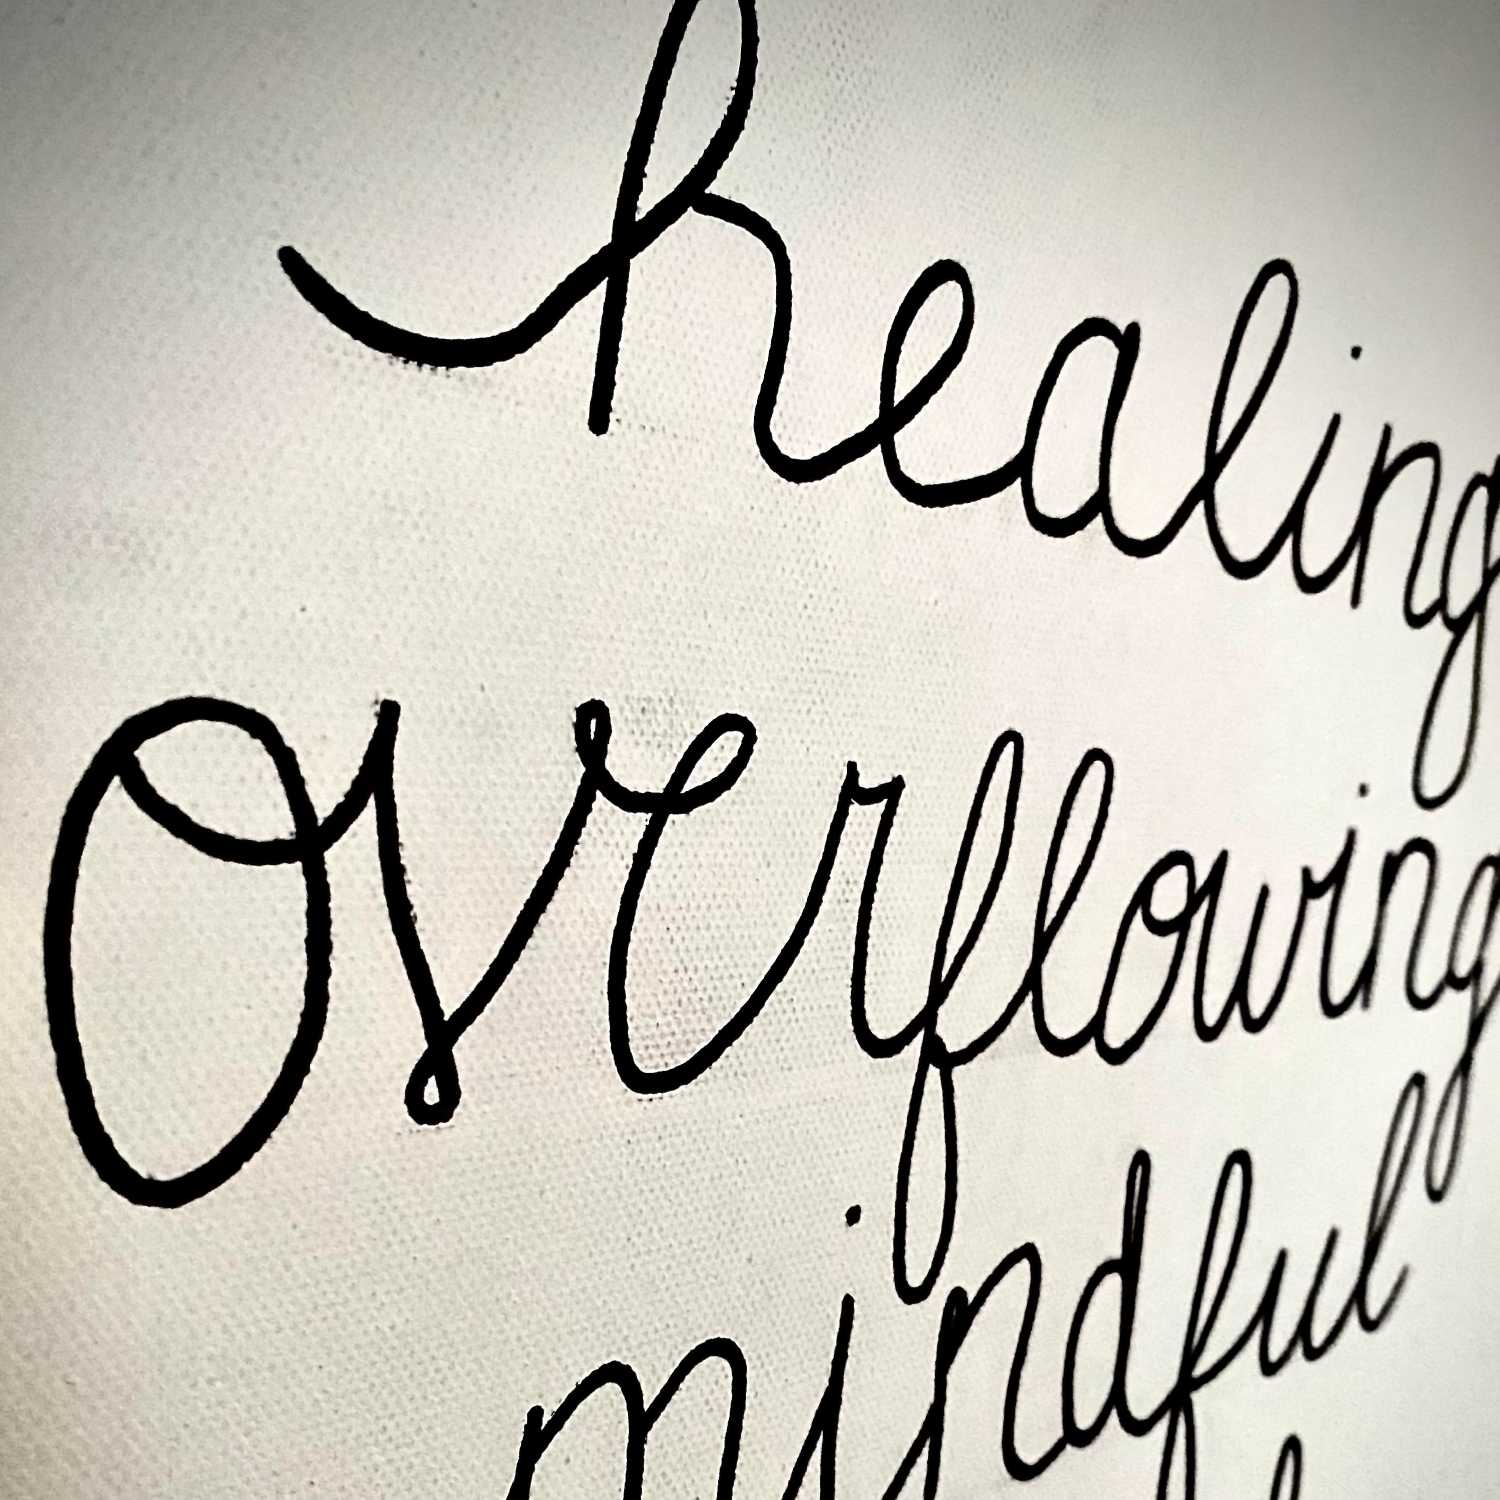 healing
overflowing
mindful